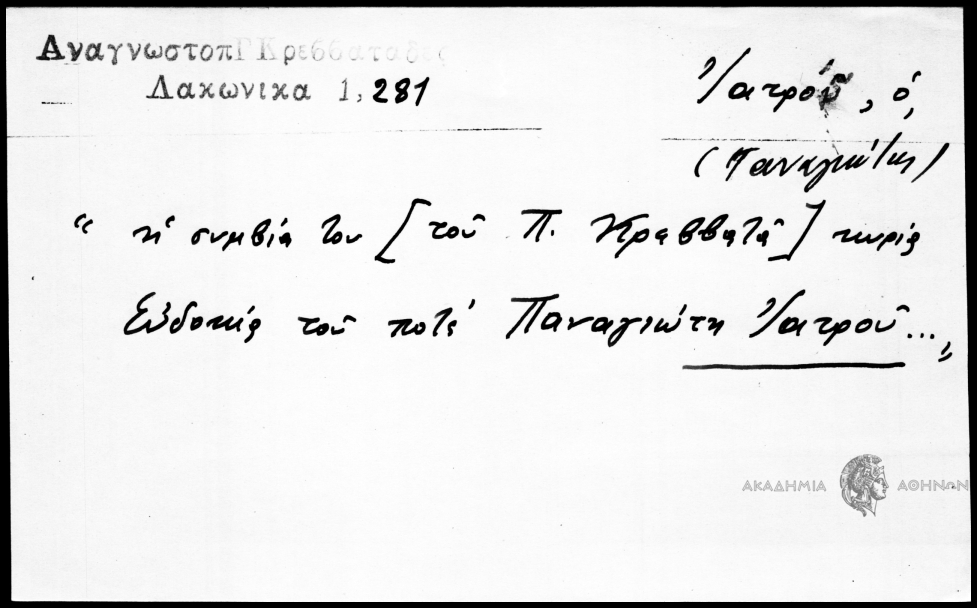 ΑναγνωστοπΓ Κρεββαταδες
Λακωνικα 1, 281
Ἰατροῦ, ὁ,
(Παναγιώτης)
“ ἡ συμβία του [τοῦ Π. Κρεββατᾶ] κυρίᾳ
Εὐδοκίᾳ τοῦ ποτέ Παναγιώτη Ἰατροῦ...,
ΑΚΑΔΗΜΙΑ ΑΘΗΝΩΝ